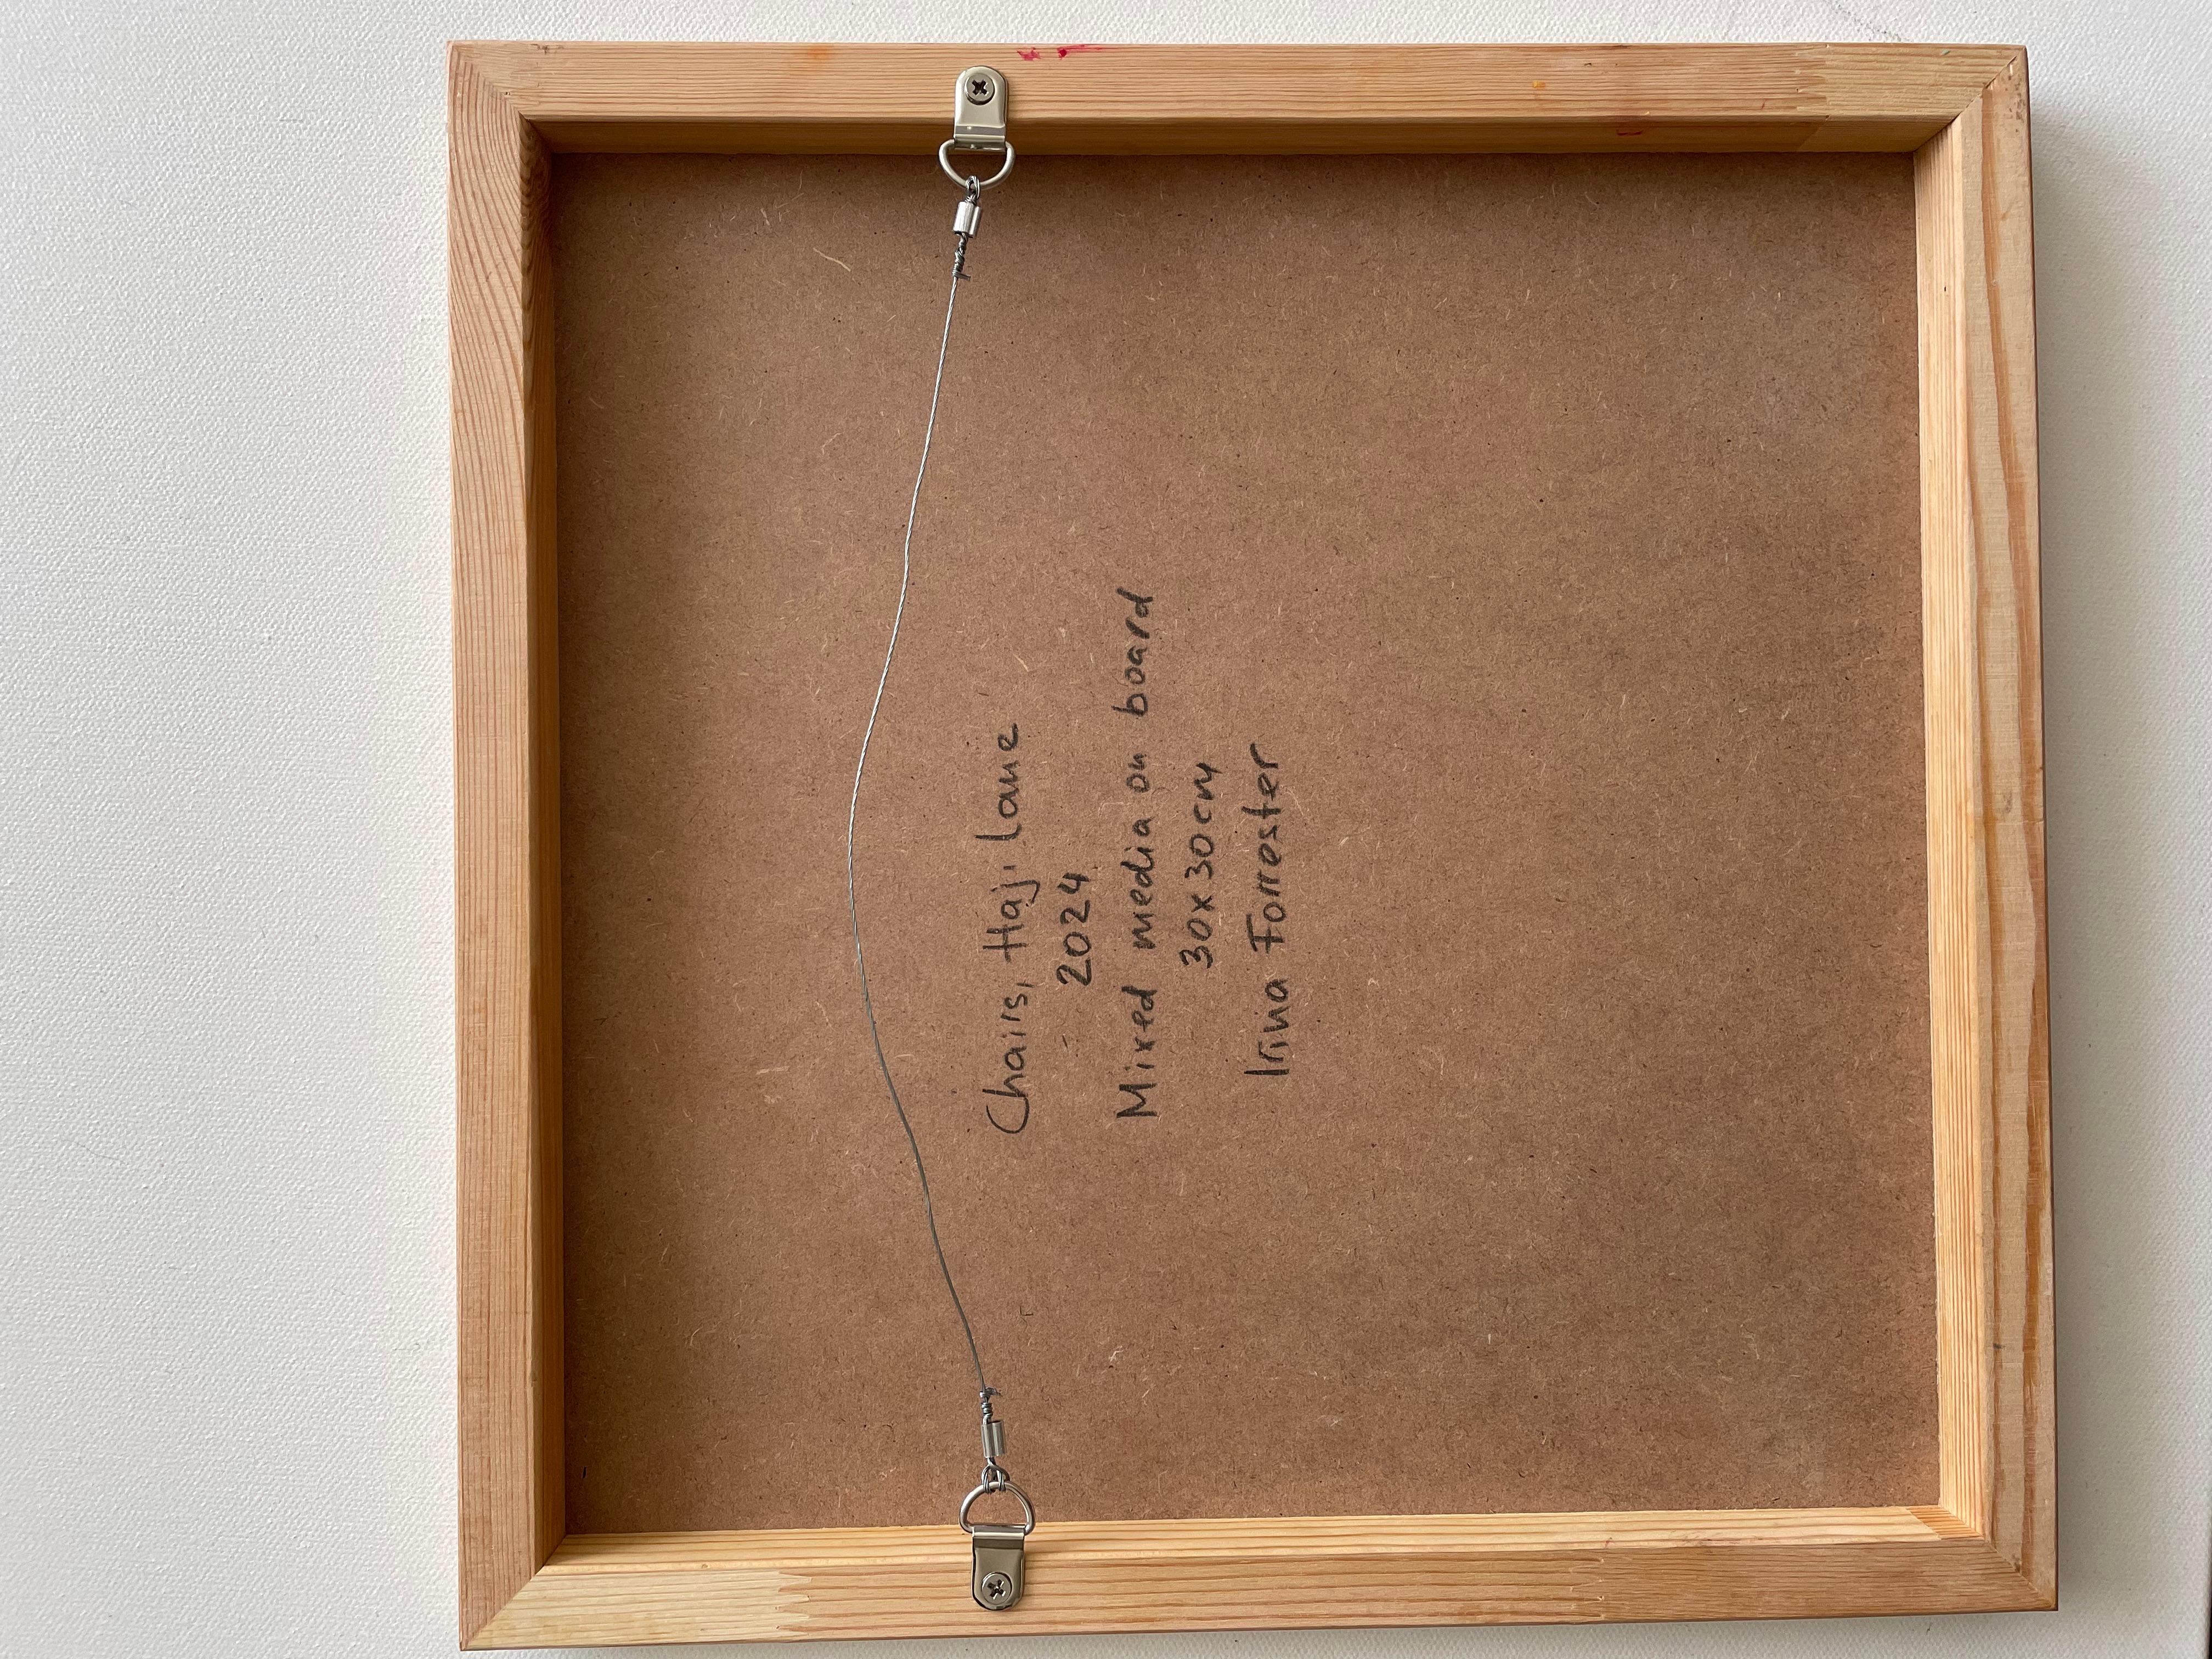 Chairs, Haji Lane
2024
Mixed media on board
30x30cm
Irina Forrester